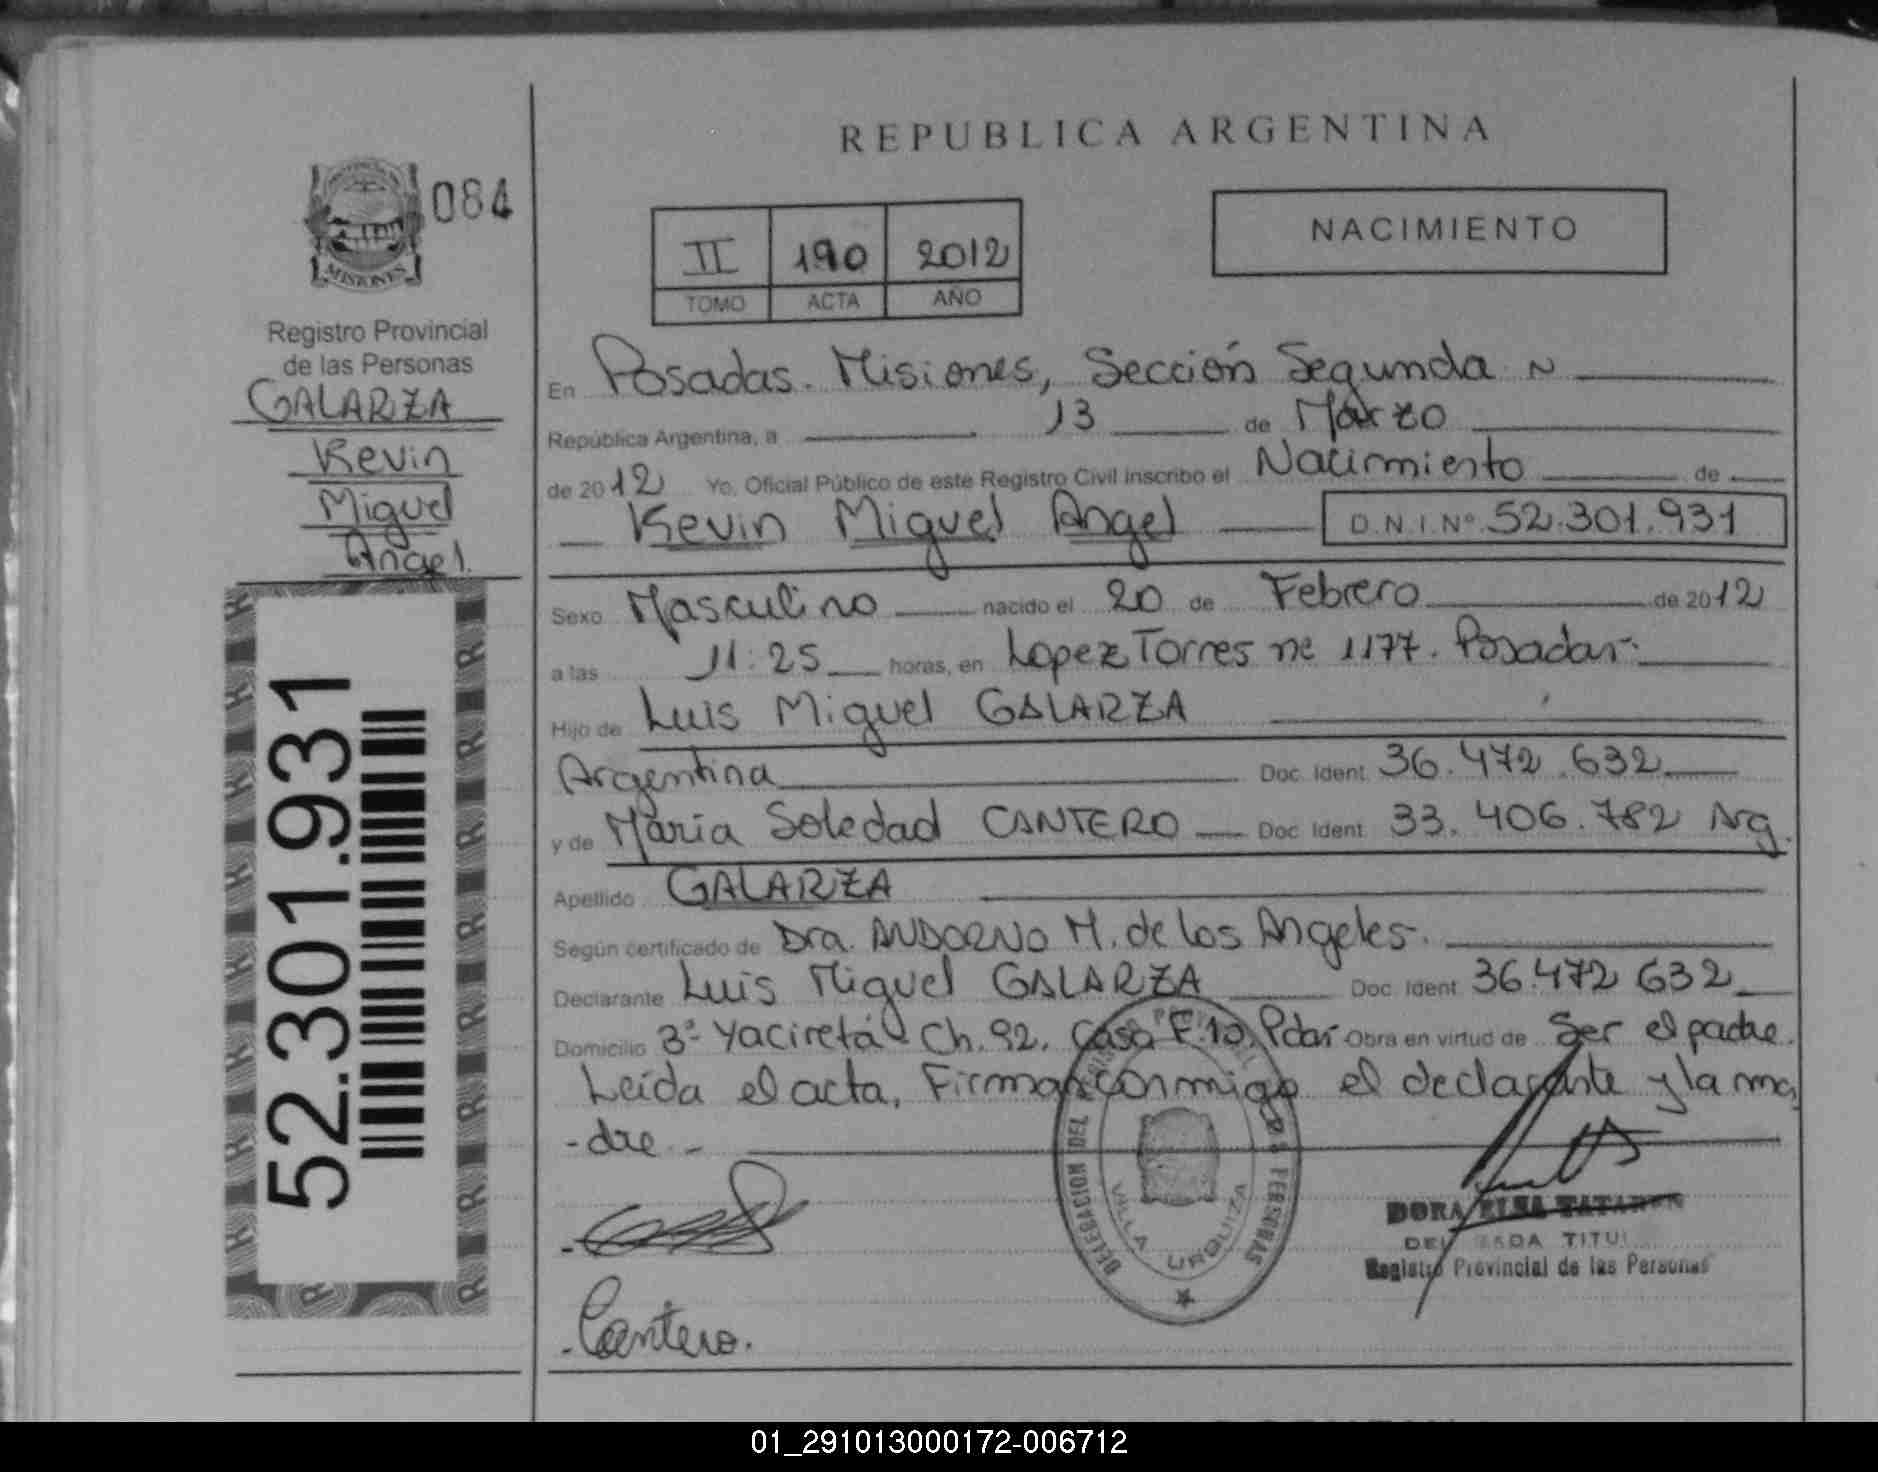 REPUBLICA ARGENTINA
084
MISIONES
Registro Provincial
de las Personas
GALARZA
Kevin
Miguel
Angel.
52.301.931
II 190 2012
TOMO ACTA AÑO
NACIMIENTO
En Posadas. Misiones, Sección Segunda N
República Argentina, a 13 de Marzo
de 2012 Yo, Oficial Público de este Registro Civil inscribo el Nacimiento de
Kevin Miguel Angel D.N.I.Nº 52.301.931
Sexo Masculino nacido el 20 de Febrero de 2012
a las 11:25 horas, en Lopez Torres nº 1177. Posadas.
Hijo de Luis Miguel GALARZA
Argentina Doc. Ident. 36.472.632
y de Maria Soledad CANTERO Doc. Ident. 33.406.782 Arg.
Apellido GALARZA
Según certificado de Dra. ANDORNO M. de los Angeles.
Declarante Luis Miguel GALARZA Doc. Ident. 36.472 632
Domicilio 3ª Yaciretá Ch. 92. Casa F. 10. Pdas Obra en virtud de Ser el padre.
Leída el acta, Firman conmigo el declarante y la ma
-dre.-
DELEGACION DEL REGISTRO PROVINCIAL DE LAS PERSONAS
VILLA URQUIZA
DORA ELSA
TITU
Registro Provincial de las Personas
-Cantero.
01_291013000172-006712